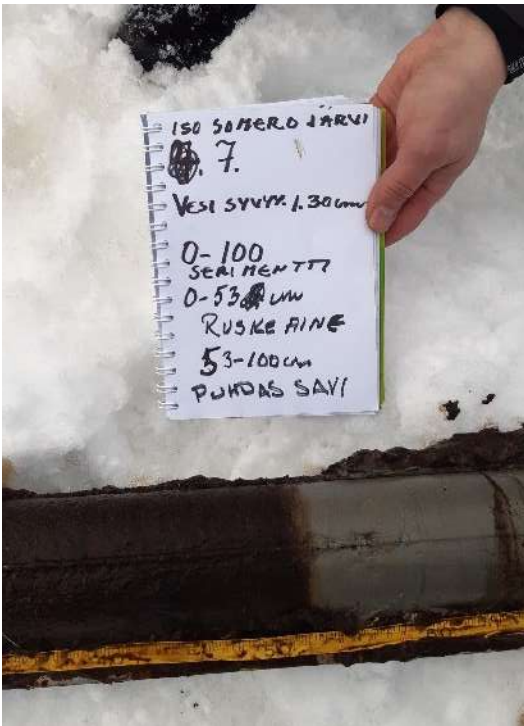 ISO SOMERO JÄRVI
7.
VESI SYVYY. 1.30cm
0-100
SERIMENTTI
0-53 cm
RUSKE AINE
53-100cm
PUHDAS SAVI